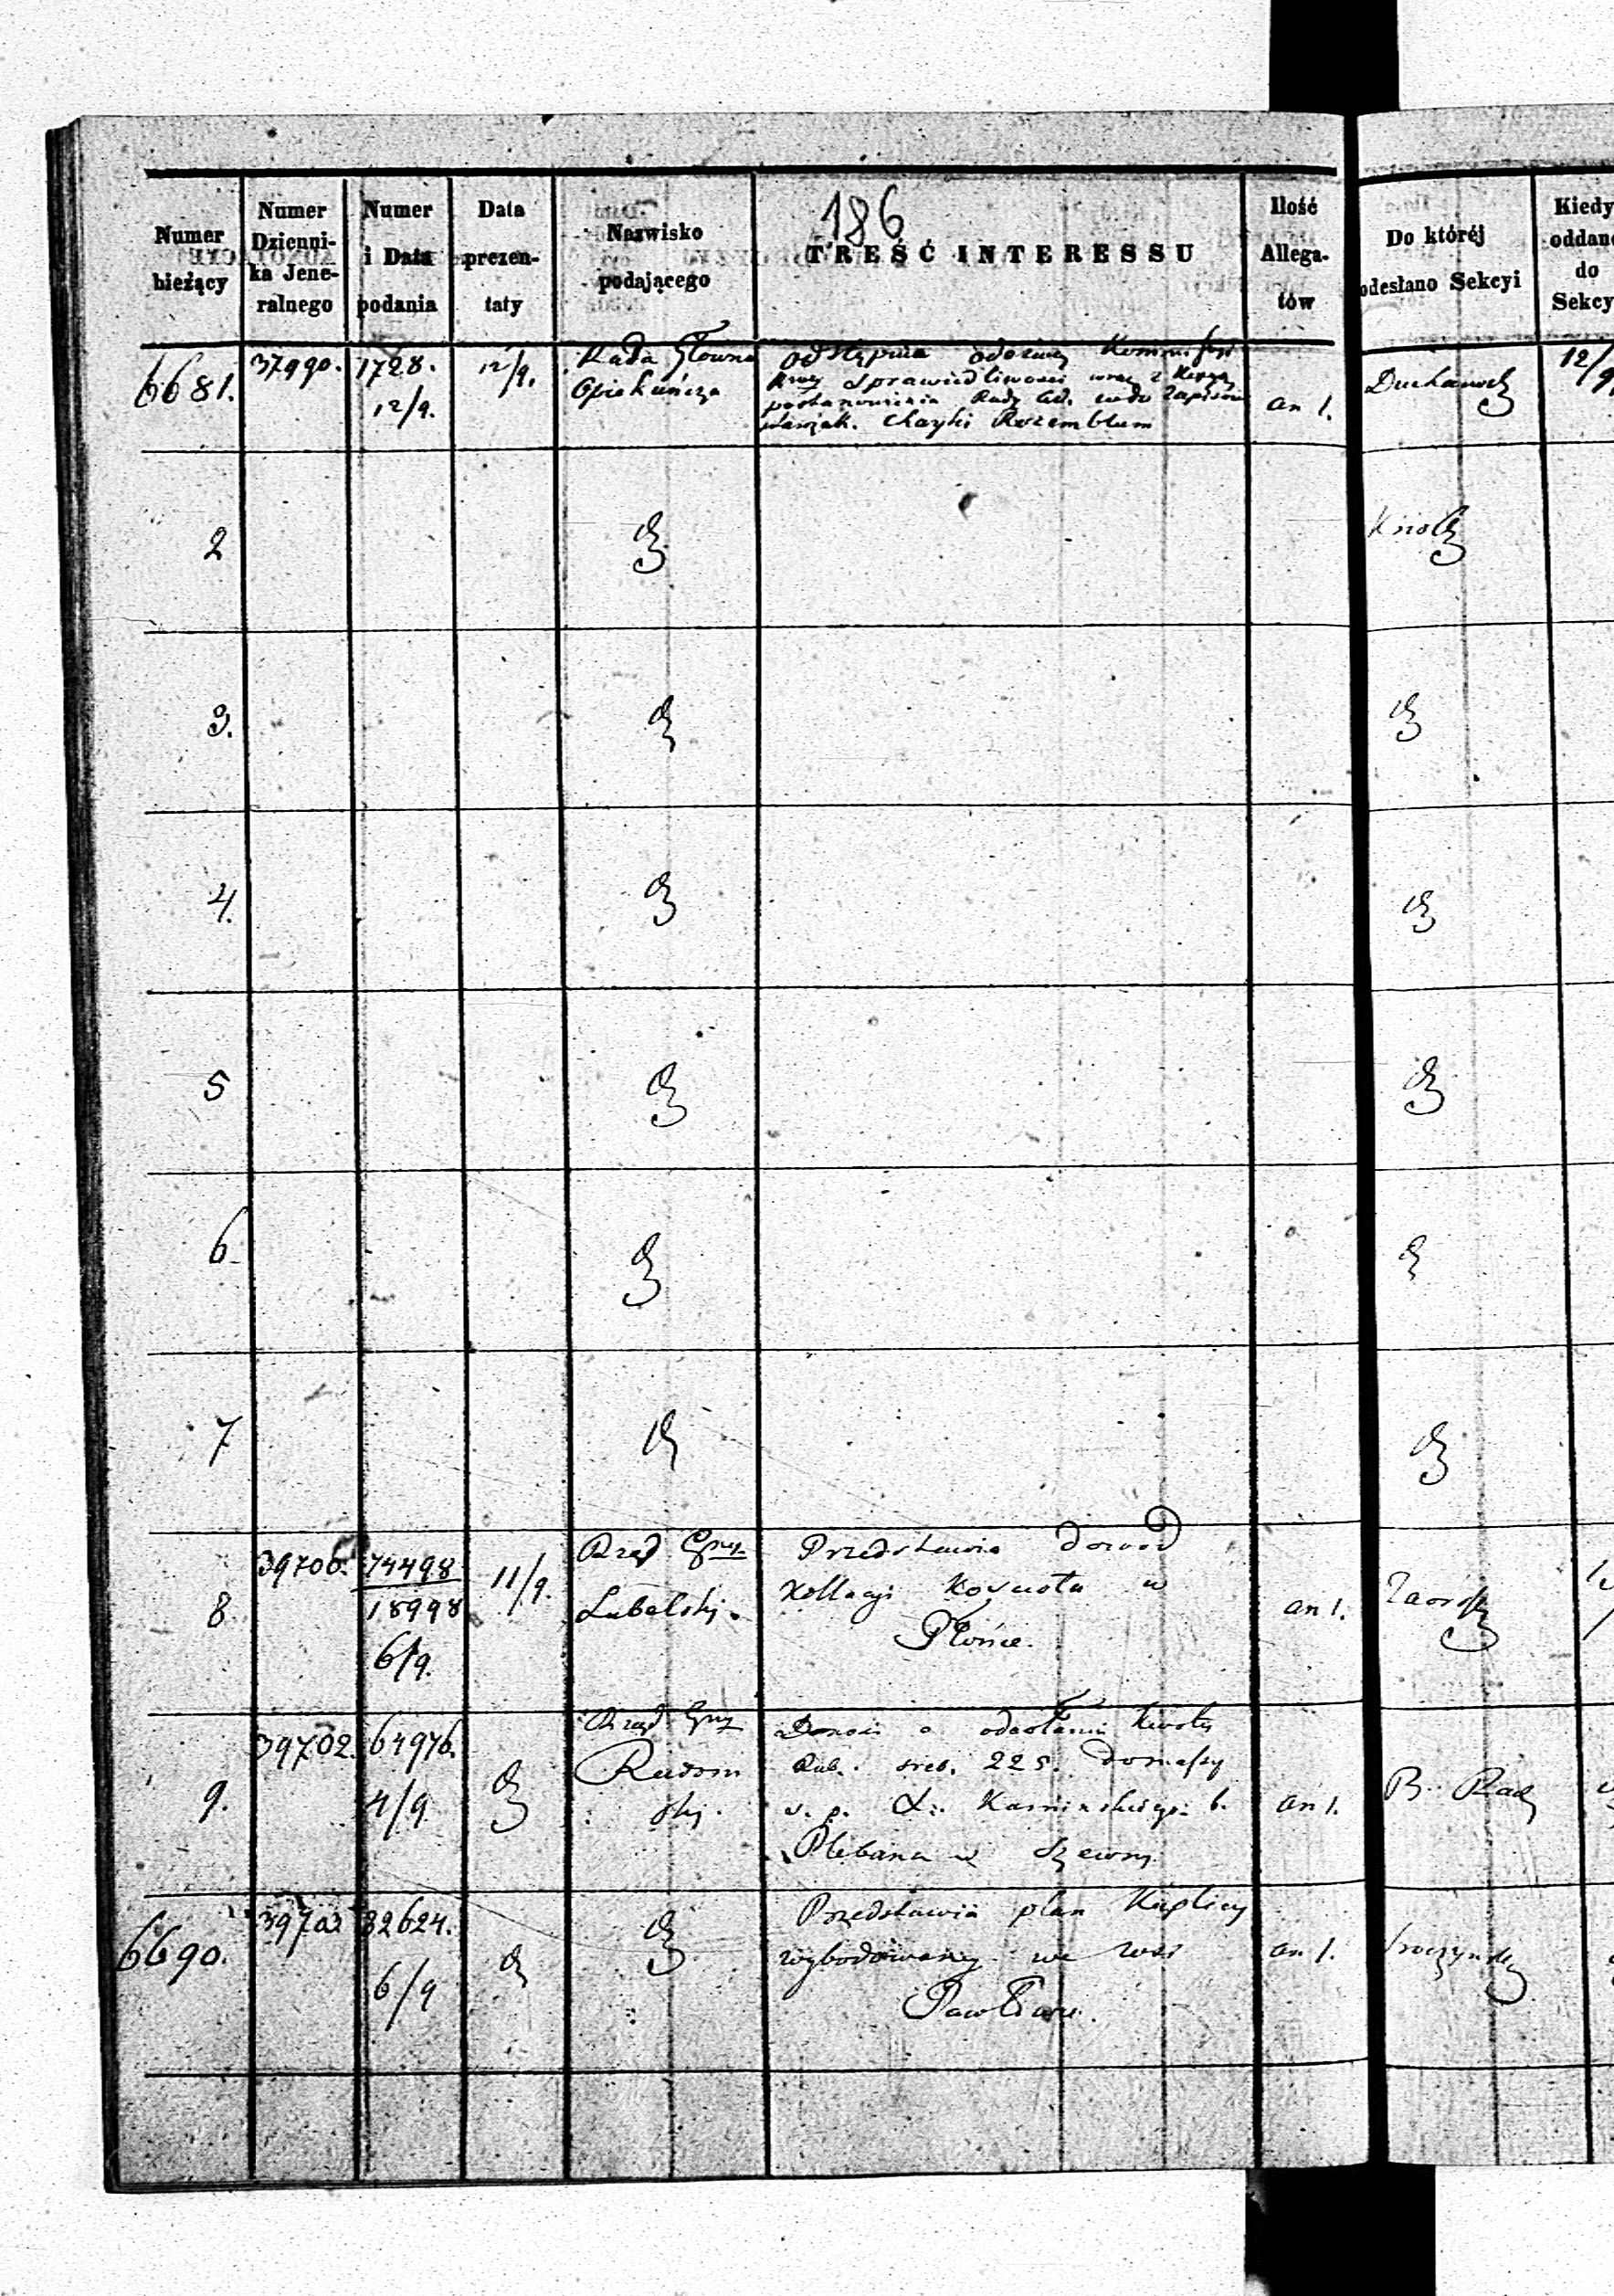 186
Numer bieżący
Numer Dzienni- ka Jene- ralnego
Numer i Data podania
Data prezen- taty
Nazwisko podającego
TREŚĆ INTERESSU
Ilość Allega- tów
Do któréj odesłano Sekcyi
Kiedy oddano do Sekcy
6681. 37990. 1728. 12/9. 12/9. Rada Główna Opiekuńcza
odstępuie odezwę Kommissyi
Sprawiedliwości wraz z
postanowienia Rady Ad. wedw Zapisów
Chayki Rozemblum
an 1.
12/9
2
3.
4.
5
6
7
8 39706. 74498 / 18998 6/9. 11/9. Rząd Gber. Lubelski.
Przedstawia dowód
Kollacyi Kościoła w
Płońce.
an 1.
9. 39702. 64976. 4/9 Rząd Gber Radom ski.
Donosi o odesłaniu kwoty
Rub. sreb. 225. domassy
s. p. X. Kaminskiego b.
Plebana w
an 1.
B. Rad
6690. 39703 82624. 6/9
Przedstawia plan Kaplicy
wybodowaney we wsi
Pawłowie.
an 1.